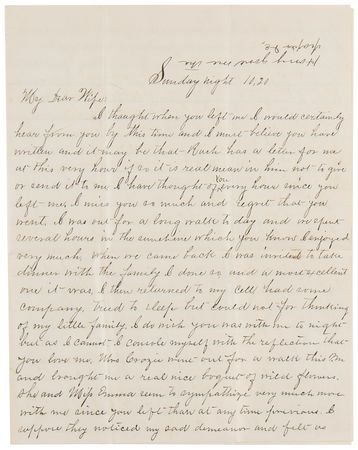 Sunday night 10,20
My Dear Wife:
I thought when you left me I would certainly
hear from you by this time and I must believe you have
written and it may be that Rach has a letter for me
at this very hour if so it is real mean in him not to give
or send it to me I have thought of you every hour since you
left me, I miss you so much and regret that you
went. I was out for a long walk to day and we spent
several hours in the sunshine which you know I enjoyed
very much, when we came back I was invited to take
dinner with the family I done so and a most excellent
one it was. I then returned to my cell had some
company. tried to sleep but could not for thinking
of my little family. I do wish you was with me to night
but as I cannot I console myself with the reflection that
you love me. Mrs Crozie went out for a walk this
and brought me a real nice boquet of wild flowers.
She and Miss Emma seem to sympathize very much more
with me since you left than at any time previous. I
suppose they noticed my sad demeanor and felt as